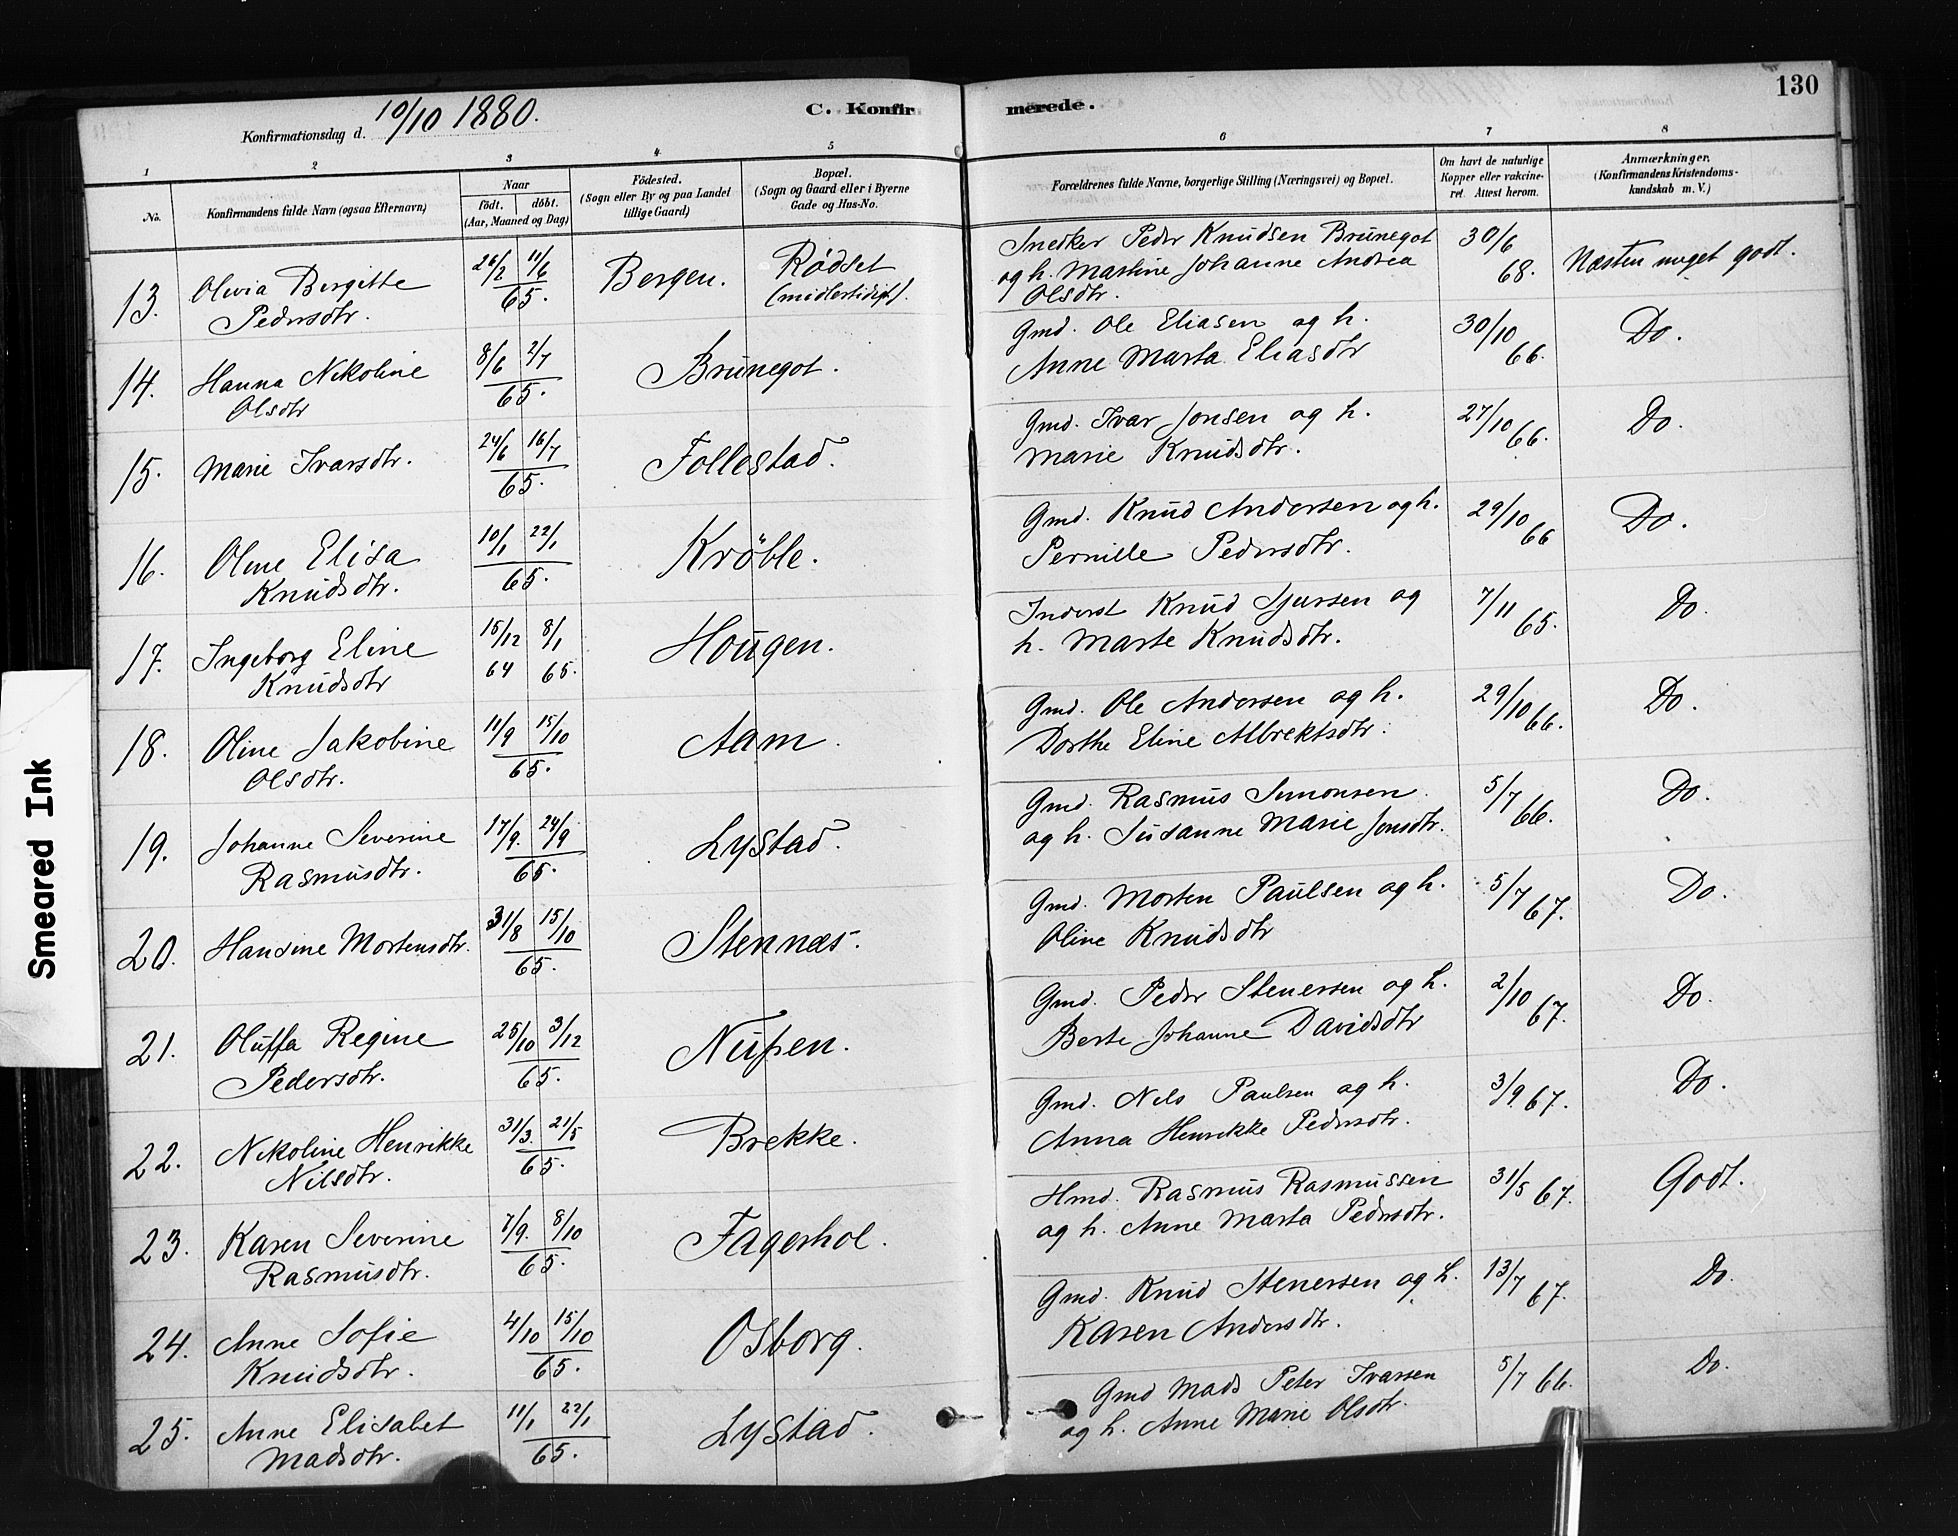 130
Konfirmationsdag d. 10/10 1880.
C. Konfirmerede.
1 2 3 4 5 6 7 8
No.
Konfirmandens fulde Navn (ogsaa Efternavn)
Naar
født. døbt.
(Aar, Maaned og Dag)
Fødested.
(Sogn eller By og paa Landet
tillige Gaard)
Bopæl.
(Sogn og Gaard eller i Byerne
Gade og Hus-No.
Forældrenes fulde Navne, borgerlige Stilling (Næringsvei) og Bopæl.
Om havt de naturlige
Kopper eller vakcine-
ret. Attest herom.
Anmærkninger.
(Konfirmandens Kristendoms-
kundskab m. V.)
13. Olivia Bergitte
Pedersdtr.
26/2 11/6
65.
Bergen.
Rödset
(midlertidigt).
Snedker Peder Knudsen Brunegot
og h. Martine Johanne Andrea
Olsdtr.
30/6
68.
Næsten meget godt.
14. Hanna Nikoline
Olsdtr
8/6 2/7
65.
Brunegot.
Gmd. Ole Eliasen og h.
Anne Marta Eliasdtr
30/10
66.
Do.
15. Marie Ivarsdtr.
24/6 16/7
65.
Follestad.
Gmd. Ivar Jonsen og h.
Marie Knudsdtr.
27/10
66.
Do.
16. Oline Elisa
Knudsdtr.
10/1 22/1
65.
Kröble.
Gmd. Knud Andersen og h.
Pernille Pedersdtr.
29/10
66
Do.
17. Ingeborg Eline
Knudsdtr
15/12 8/1
64 65.
Hougen.
Inderst Knud Sjursen og
h. Marte Knudsdtr.
7/11
65.
Do.
18. Oline Jakobine
Olsdtr.
11/9 15/10
65.
Aam.
Gmd. Ole Andersen og h.
Dorthe Eline Albrektsdtr.
29/10
66.
Do.
19. Johanne Severine
Rasmusdtr.
17/9. 24/9
65.
Lystad.
Gmd. Rasmus Simonsen
og h. Susanne Marie Jonsdtr.
5/7
66.
Do.
20. Hansine Mortensdtr.
31/8 15/10
65.
Stennæs.
Gmd. Morten Paulsen og h.
Oline Knudsdtr
5/7
67.
Do.
21. Oluffa Regine
Pedersdtr.
25/10 3/12
65.
Nupen.
Gmd. Peder Stenersen og h.
Berte Johanne Davidsdtr
2/10
67.
Do.
22. Nikoline Henrikke
Nilsdtr.
31/3. 21/5
65.
Brekke.
Gmd. Nils Paulsen og h.
Anna Henrikke Pedersdtr.
3/9. 67.
Do.
23. Karen Severine
Rasmusdtr.
7/9. 8/10
65.
Fagerhol.
Hmd. Rasmus Rasmussen
og h. Anne Marta Pedersdtr.
31/5 67.
Godt.
24. Anne Sofie
Knudsdtr.
4/10 15/10
65.
Osborg.
Gmd. Knud Stenersen og h.
Karen Andersdtr.
13/7
67.
Do.
25. Anne Elisabet
Madsdtr.
11/1 22/1
65.
Lystad.
Gmd Mads Peter Ivarsen
og h. Anne Marie Olsdtr.
5/7 66.
Do.
Smeared Ink